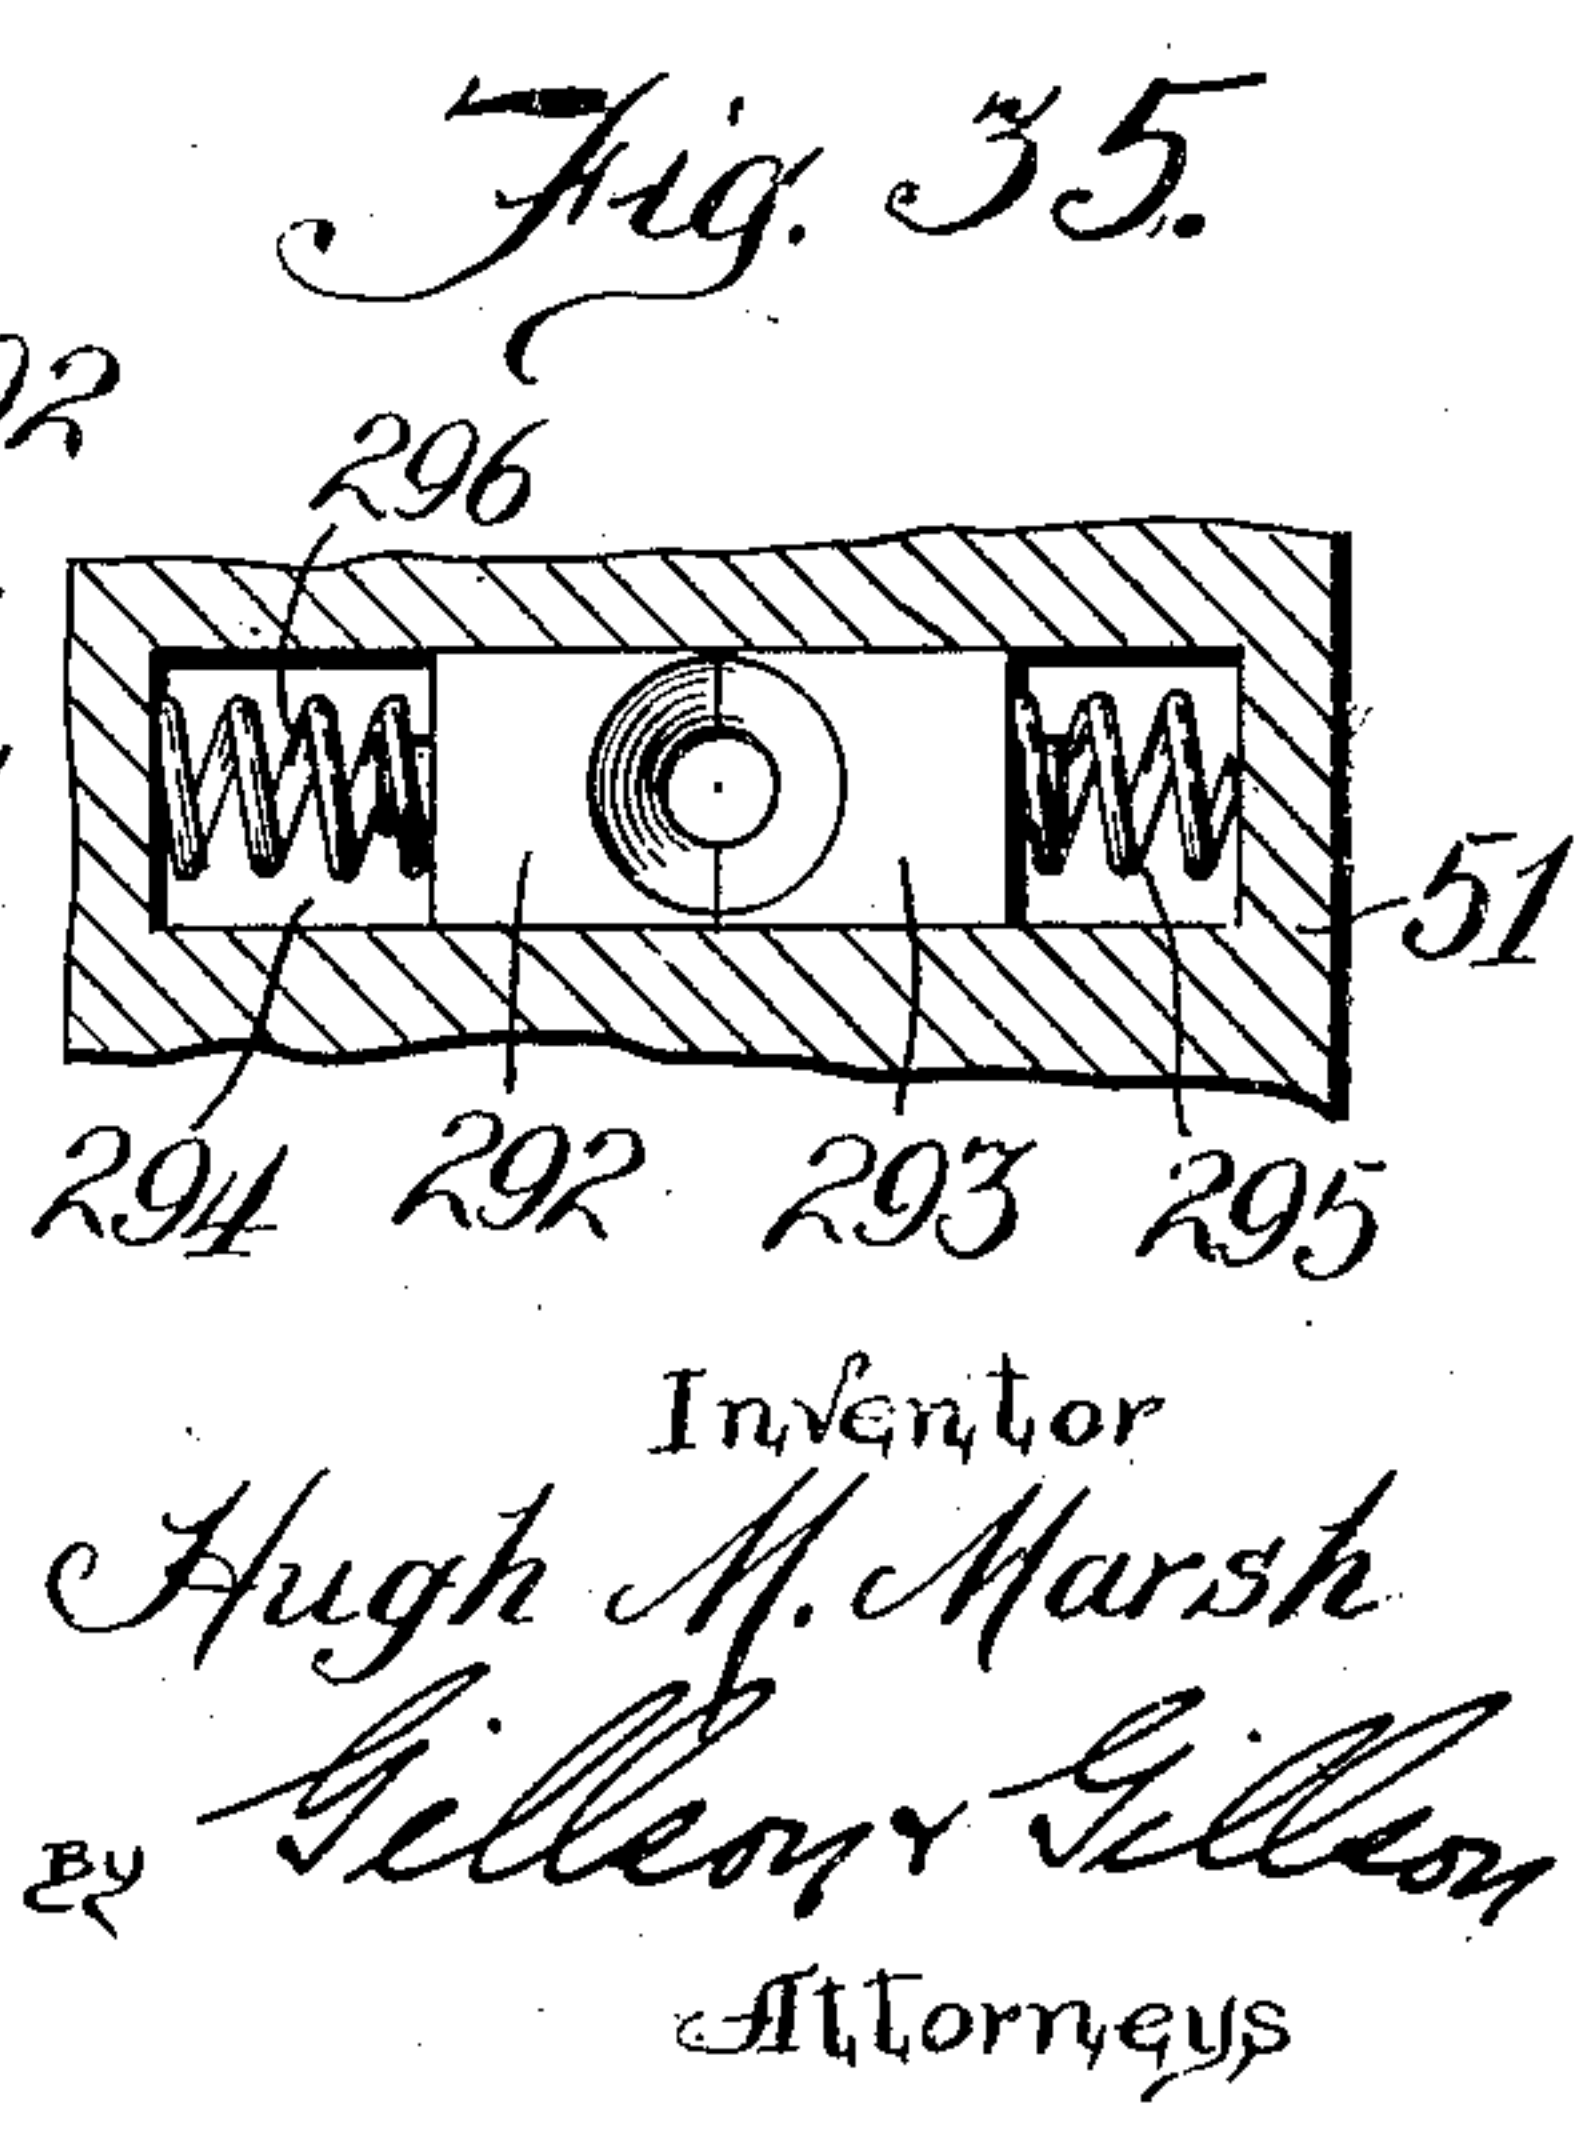 Fig. 35.
296
51
294 292 293 295
Inventor
Hugh M. Marsh
By Gillson & Gillson
Attorneys